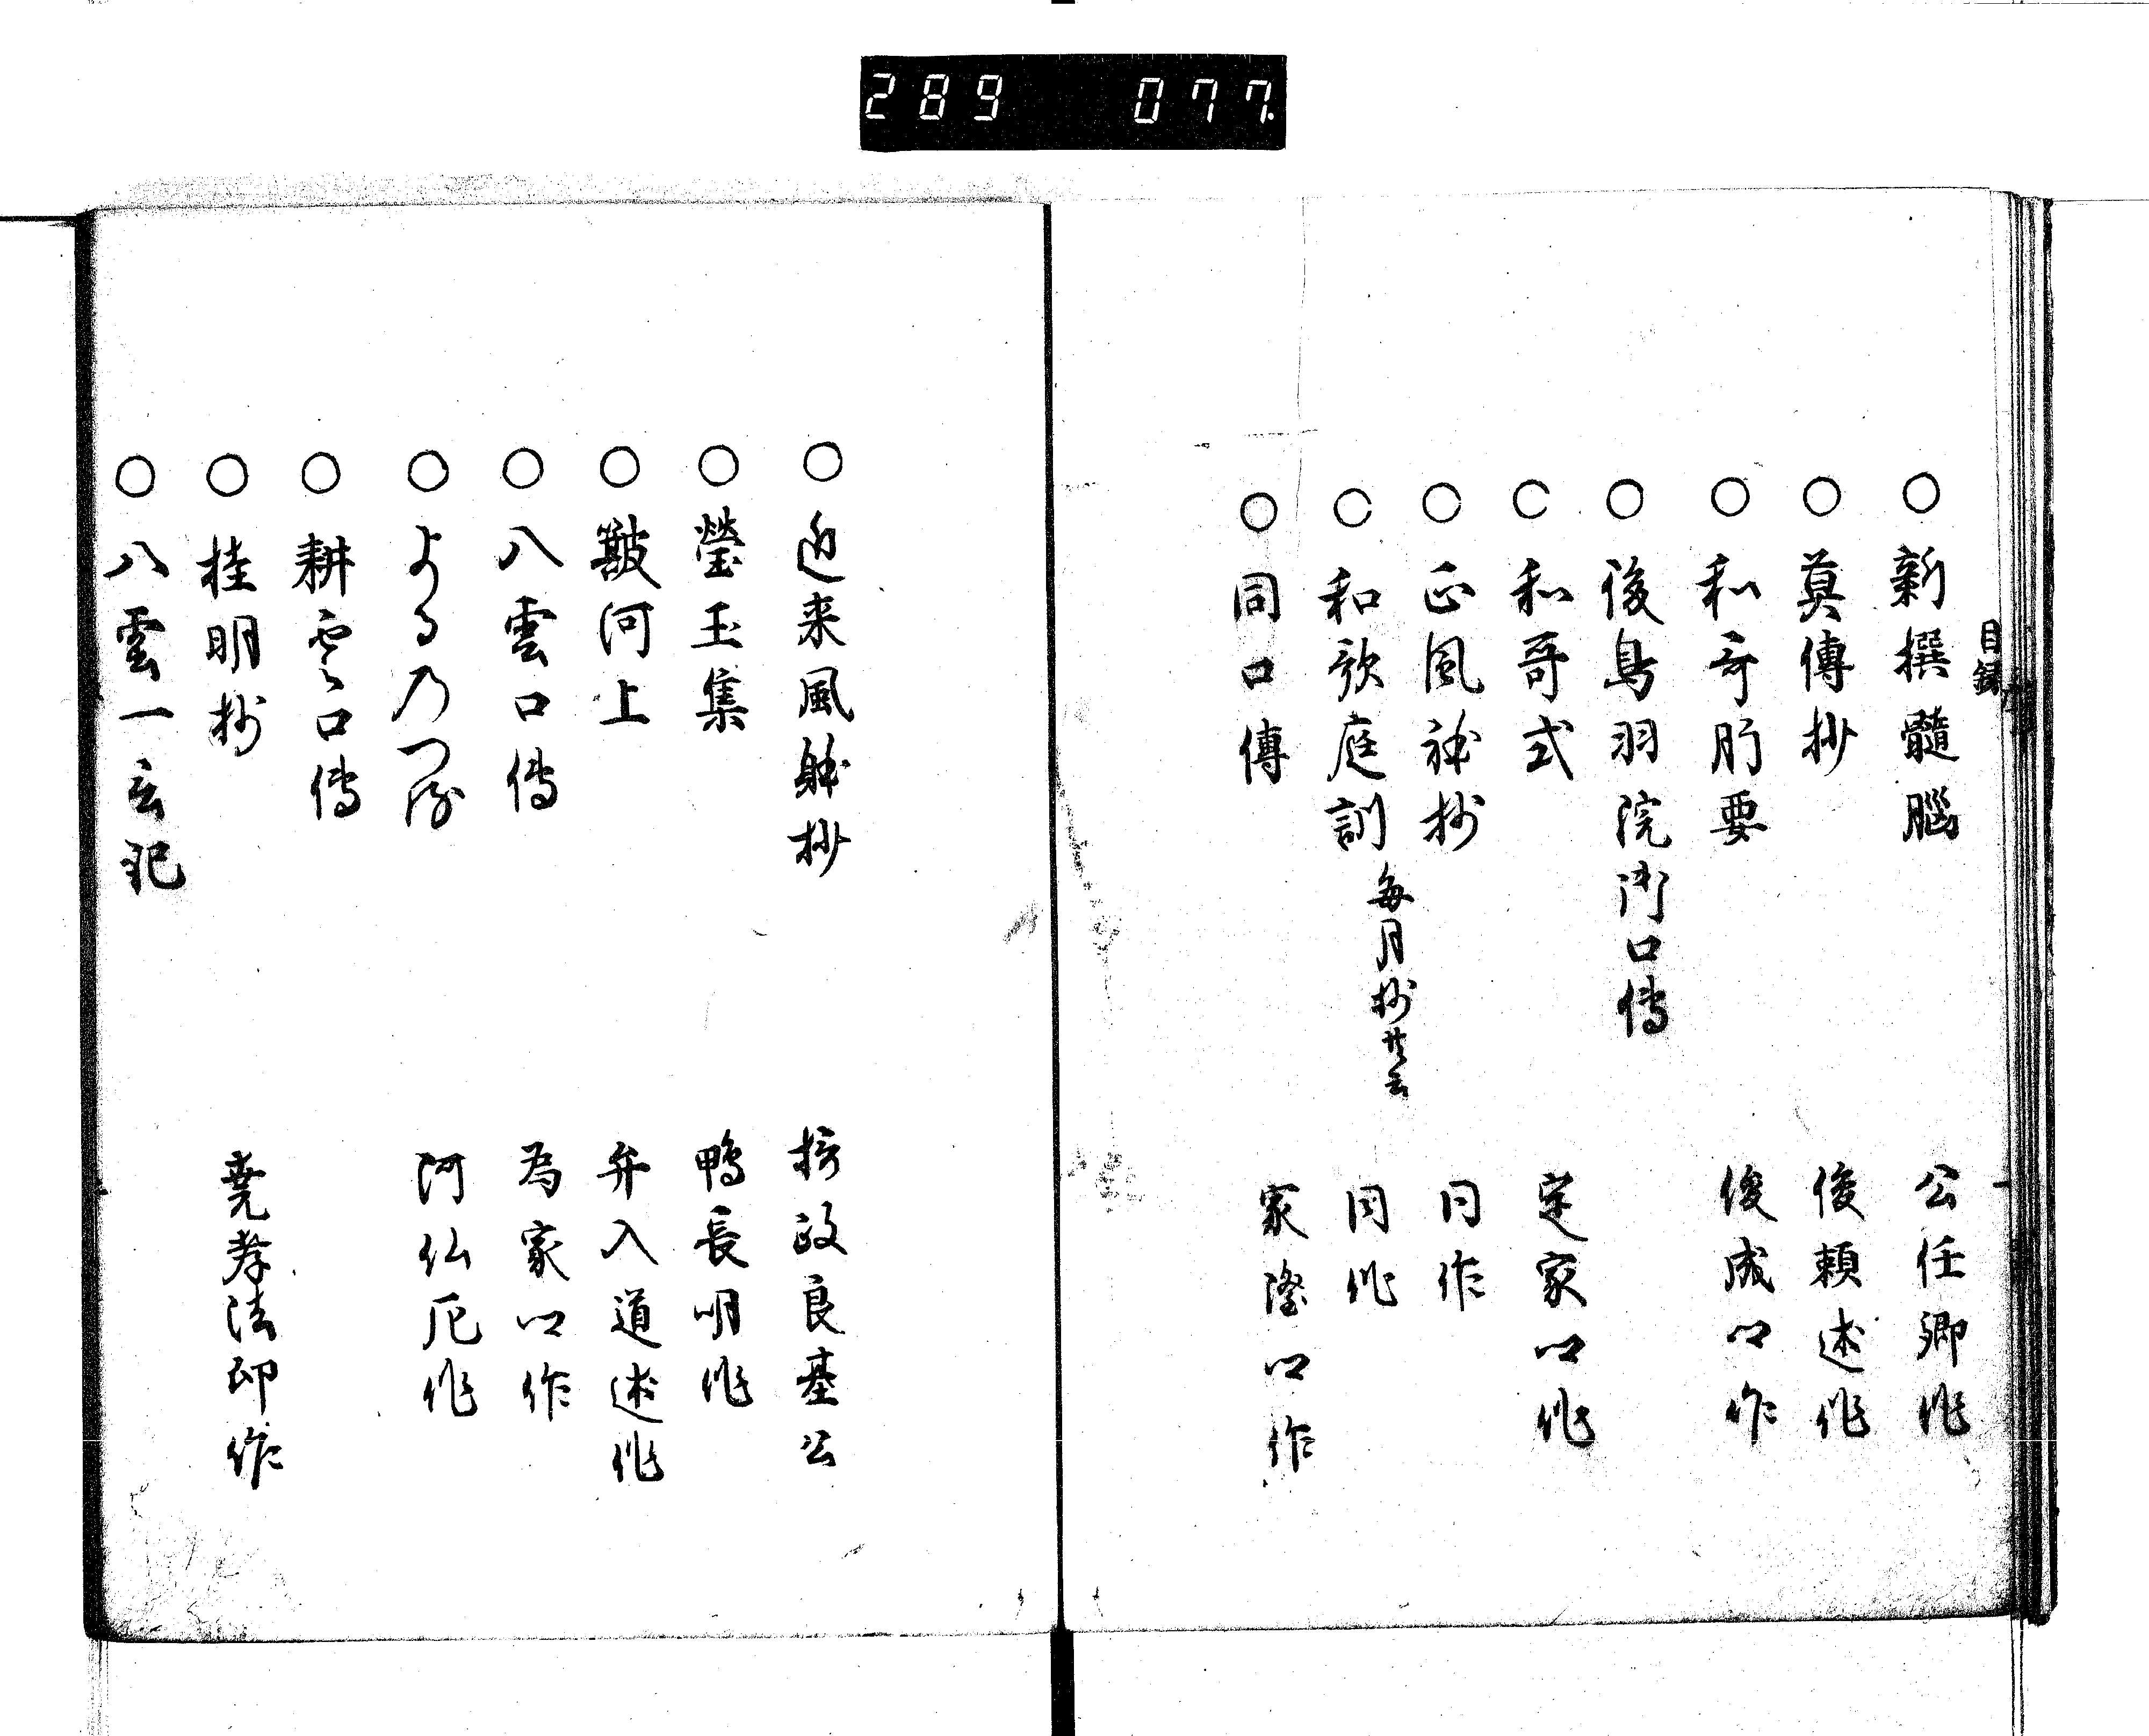 289 077
目録
○新撰髓腦 公任卿作
○莫傳抄 俊頼述作
○和哥肝要 俊成口作
○後鳥羽院御口傳
○和哥式 定家口作
○正風躰抄 同作
○和歌庭訓 毎月抄共云 同作
○同口傳 家隆口作
○近来風躰抄 摂政良基公
○瑩玉集 鴨長明作
○簸河上 弁入道述作
○八雲口傳 為家口作
○よるの乃つる 阿仏尼作
○耕雲口傳
○桂明抄 堯孝法印作
○八雲一言記